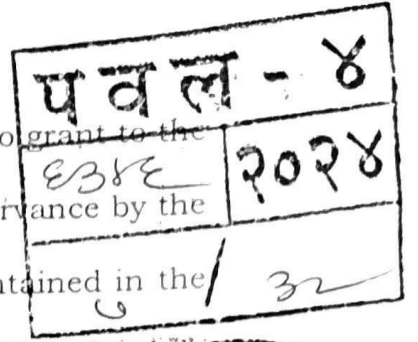 पवल - ४
o grant to the
६३४६ २०२४
rvance by the
ntained in the
७ / ३२